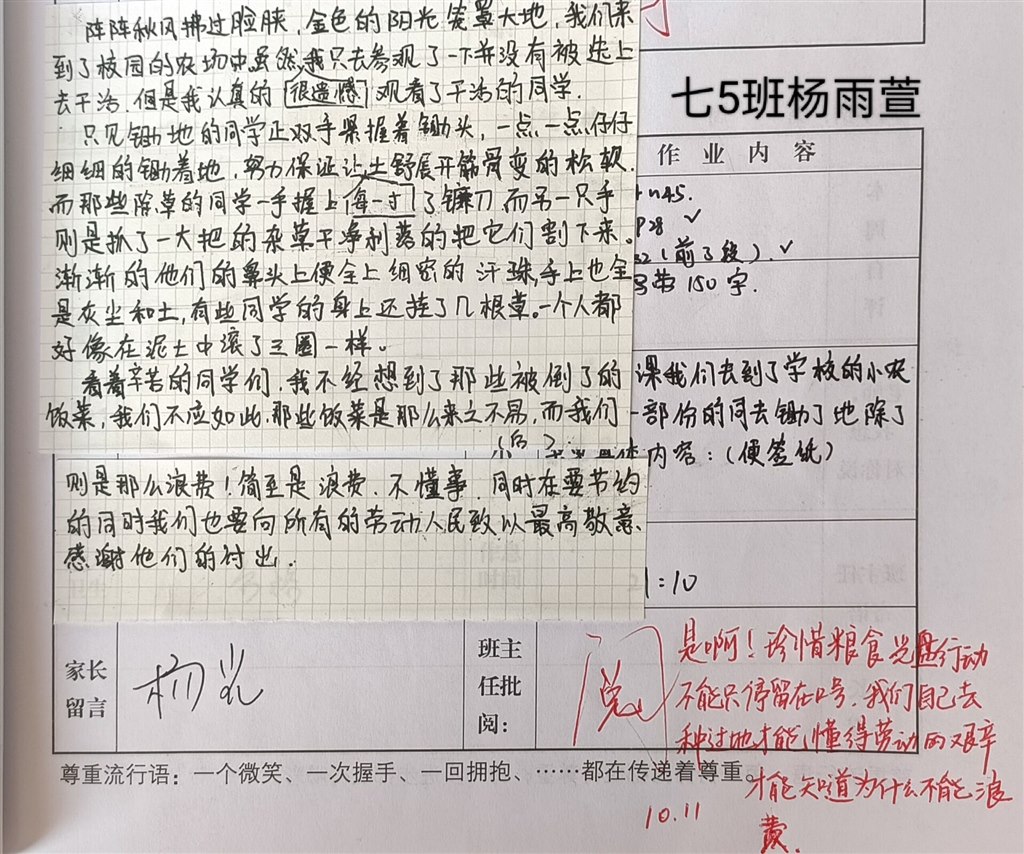 阵阵秋风拂过脸颊，金色的阳光笼罩大地，我们来
到了校园的农场中虽然，我只去参观了一下并没有被选上
去干活，但是我认真的（很遗憾）观看了干活的同学．
只见锄地的同学正双手紧握着锄头，一点一点仔仔
细细的锄着地，努力保证让土舒展开筋骨变的松软．
而那些除草的同学一手握上（每一寸）了镰刀，而另一只手
则是抓了一大把的杂草干净利落的把它们割下来。
渐渐的他们的鼻头上便全上细密的汗珠，手上也全
是灰尘和土，有些同学的身上还挂了几根草。一个人都
好像在泥土中滚了三圈一样。
看着辛苦的同学们，我不经想到了那些被倒了的
饭菜，我们不应如此．那些饭菜是那么来之不易，而我们
则是那么浪费！简至是浪费、不懂事．同时在要节约
的同时我们也要向所有的劳动人民致以最高敬意、
感谢他们的付出．
七5班杨雨萱
作业内容
n45．
P28 ✓
（前3段）．✓
150字．
课我们去到了学校的小农
一部份的同去锄了地除了
内容：（便签纸）
1:10
家长
留言
班主
任批
阅：
阅
是啊！珍惜粮食光盘行动
不能只停留在口号．我们自己去
种过地才能懂得劳动的艰辛
才能知道为什么不能浪
费．
10.11
尊重流行语：一个微笑、一次握手、一回拥抱、……都在传递着尊重。